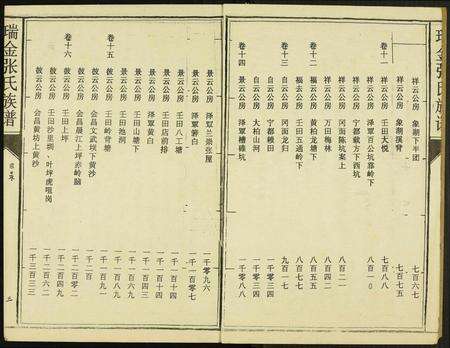 瑞金张氏族谱
祥云公房 象湖下半团 七百六七
祥云公房 象湖摸背 七百七五
卷十一 祥云公房 壬田大悦 七百八八
祥云公房 泽覃百公坑靠岭下 八百一〇
祥云公房 宁都戴方下西坑
祥云公房 冈面陈坑案上 八百二一
祥云公房 万田梅林 八百四二
卷十二 福云公房 黄柏龙塘下 八百五五
福云公房 壬田五通岭下 八百八七
卷十三 自云公房 冈面龙归 九百一七
自云公房 宁都赖田 一千〇三四
自云公房 大柏山河 一千〇三四
卷十四 景云公房 泽覃槽碓坑 一千〇八八
景云公房 泽覃兰崇张屋 一千零九六
景云公房 泽覃箬白 一千一百零七
景云公房 壬田八工塘 一千一百十四
景云公房 壬田店前排 一千一百二四
景云公房 泽覃黄白 一千一百四三
景云公房 壬田山塘下
景云公房 壬田池河
卷十五 敛云公房 壬田岭背塘 一千一百九九
敛云公房 会昌文武坝下黄沙 一千二百
敛云公房 会昌晨江上坪赤岭脑 一千二百零二
卷十六 敛云公房 壬田上坪 一千二百四九
敛云公房 壬田沙里垇、叶坪虎咀岗 一千二百六二
敛云公房 会昌黄坊上黄沙 一千三百三三
瑞金张氏族谱
目录
三